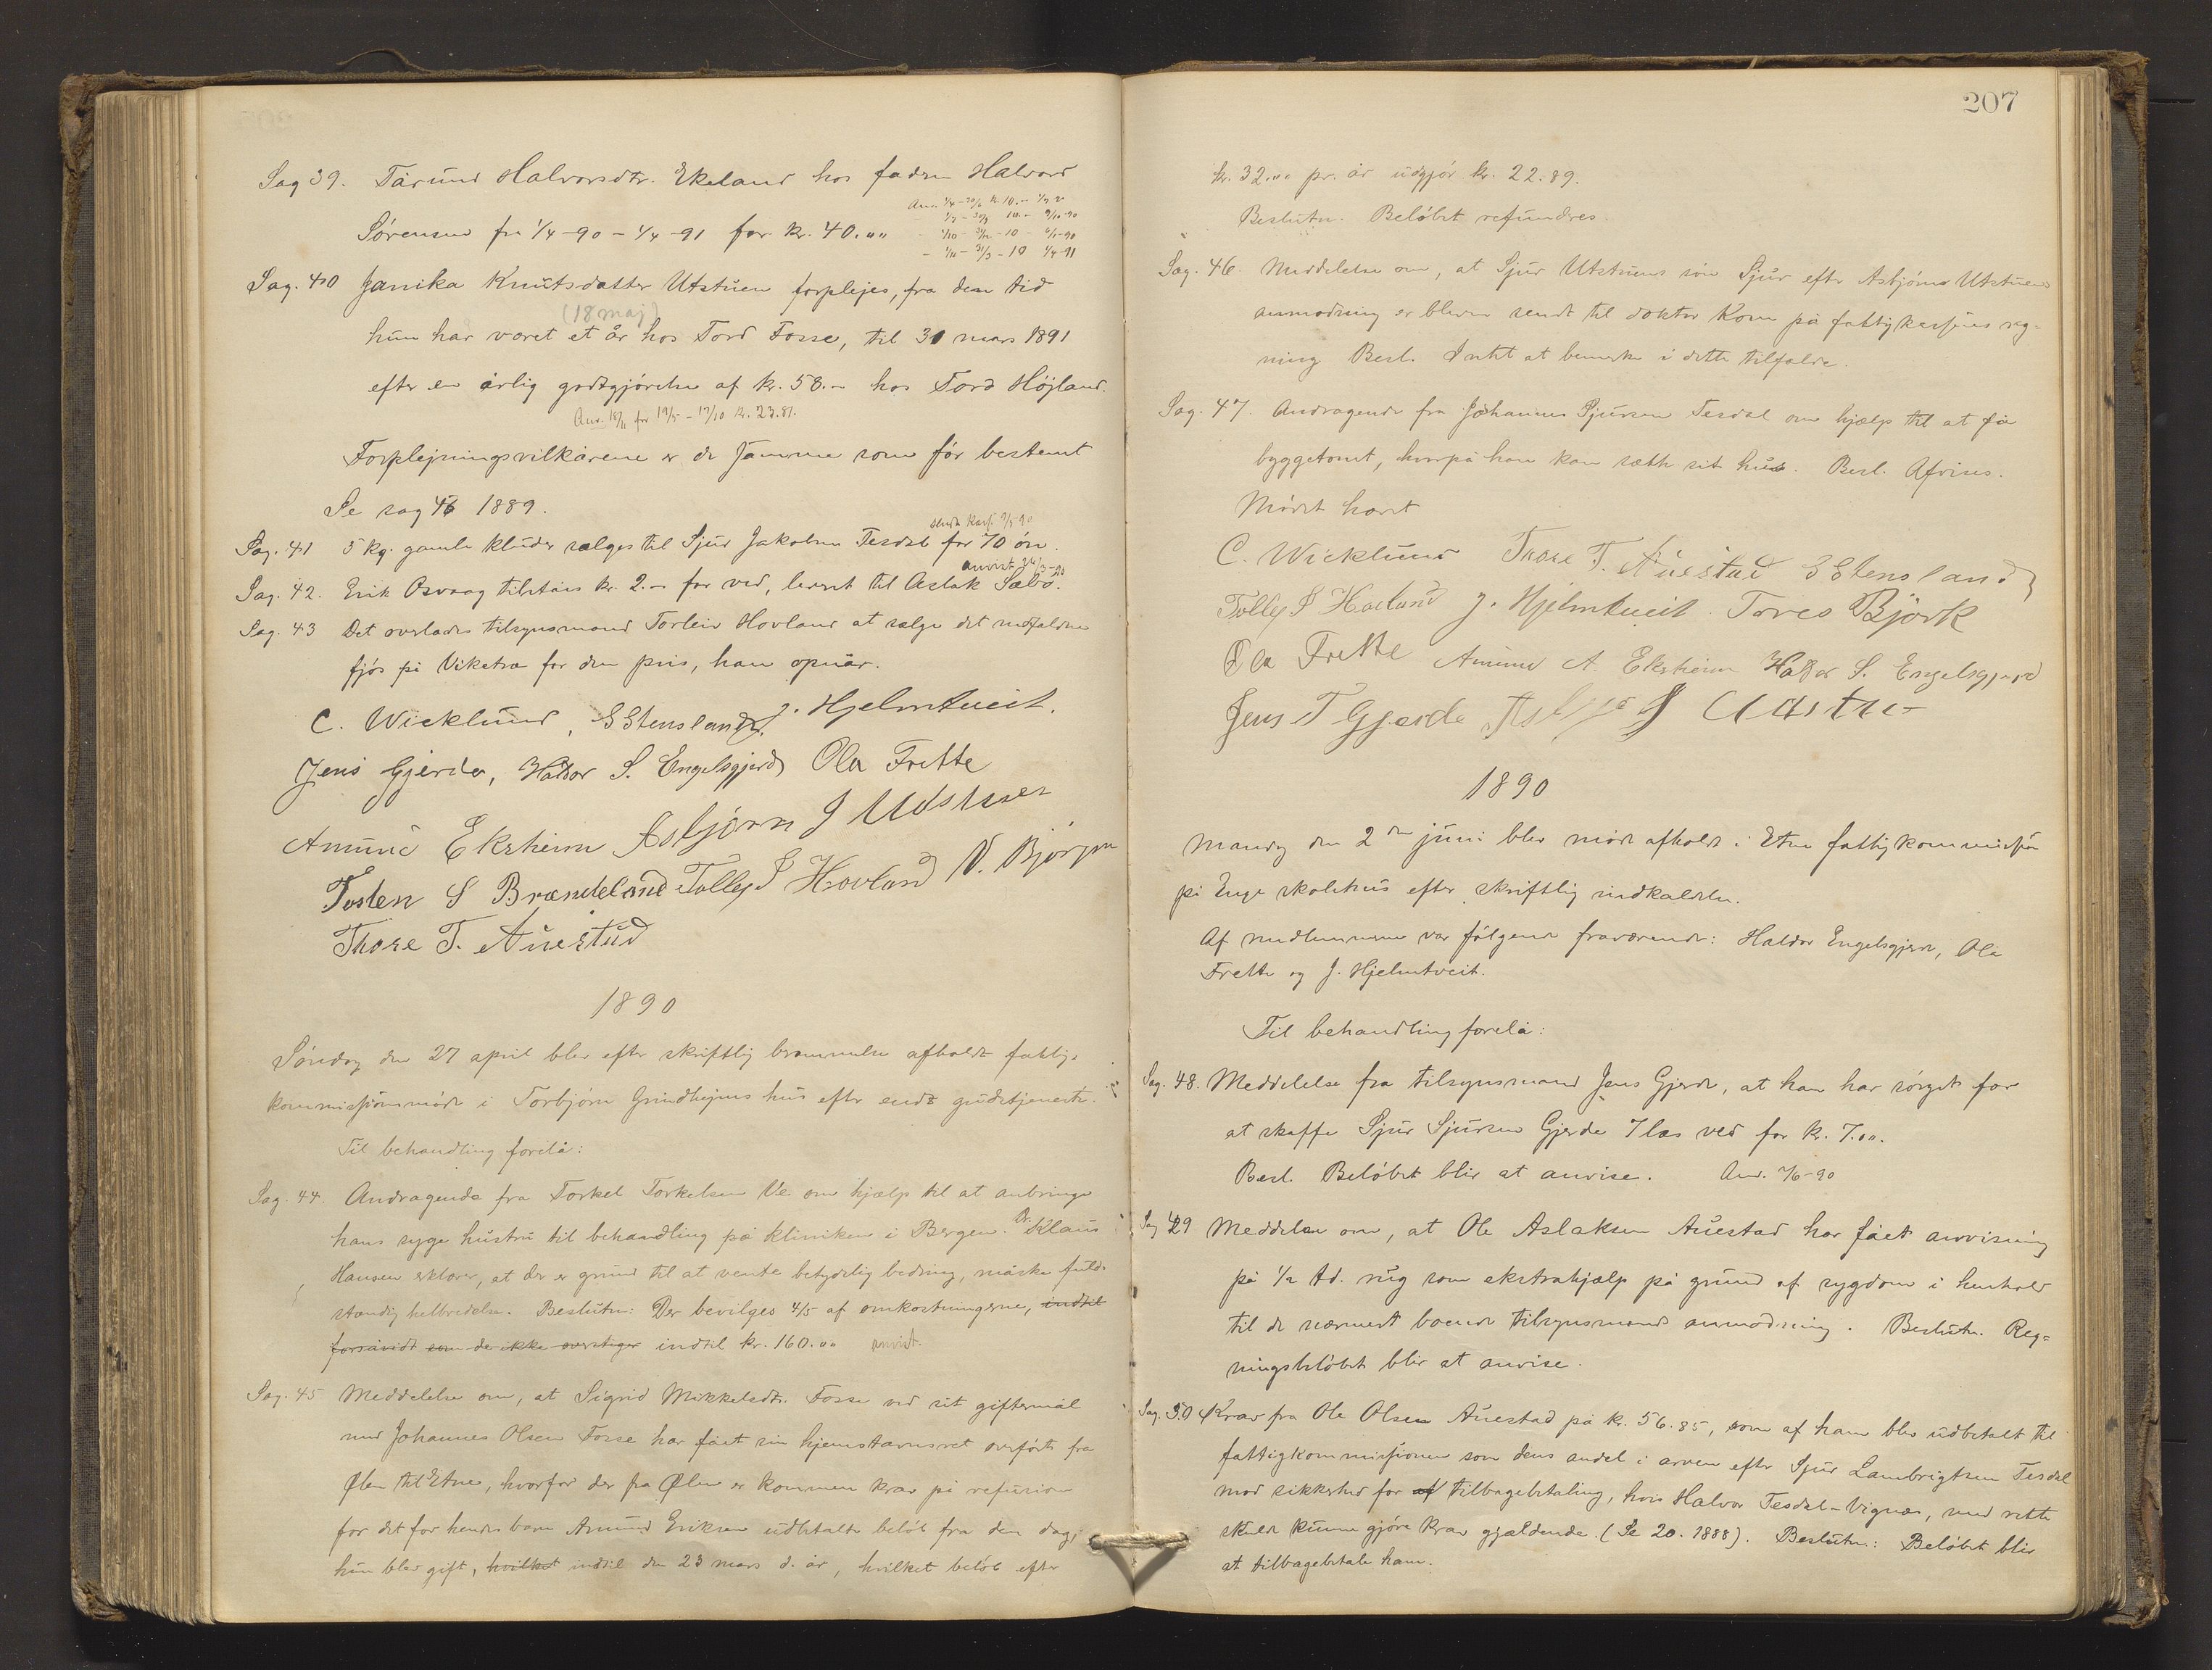 Sag 39. Tårund Halvorsdtr. Ekeland hos faderen Halvard
Anv. 1/4-30/6 kr. 10.-
1/7-30/9 10.- 9/10-90
Sørensen fra 1/4-90-1/4-91 for kr. 40.""
1/10-31/12-10-
- 31/3-10 1/4-91
Sag. 40 Janika Knutsdatter Utstuen forplejes, fra den tid
(18 maj)
hun har været et år hos Tord Fosse, til 31 mars 1891
efter en årlig godtgjörelse af kr. 58.- hos Tord Höjland.
Anv. 18/11 for 19/5-17/10 kr. 23.81.
Forplejningsvilkårene er de samme som för bestemt
Se sag 46 1889.
Sag. 41 5 kg. gamle kluder sælges til Sjur Jakobsen Tesdal for 70 öre.
anvist 26/3-90
Sag. 42. Erik Osvaag tilståes kr. 2.- for ved, leveret til Aslak Sæbö.
Sag. 43 Det overlades tilsynsmand Torleiv Hovland at sælge det nedfaldne
fjös på Viketræ for den pris, han opnår.
C. Wicklund, E Stensland, J. Hjelmtveit.
Jens Gjerde, Haldor S. Engelsgjerd Ola Frette
Amund Eksheim Asbjörn J Udstuen
Tosten S Brændeland Tollef S Hovland N. Björgen
Thore T. Auestad
1890
Söndag den 27 april blev efter skriftlig berammelse afholdt fattig-
kommissionsmöde i Torbjörn Grindhejms hus efter endt gudstjeneste.
Til behandling forelå:
Sag. 44. Andragende fra Torkel Torkelsen Ve om hjælp til at anbringe
hans syge hustru til behandling på kliniken i Bergen. Dr. Klaus
Hansen erklærer, at der er grund til at vente betydelig bedring, måske fuld-
stændig helbredelse. Beslutn: Der bevilges 4/5 af omkostningerne, indtil
forsåvidt som de ikke overstiger indtil kr. 160."" anvist.
Sag. 45 Meddelelse om, at Sigrid Mikkelsdtr. Fosse ved sit giftermål
med Johannes Olsen Fosse har fået sin hjemstavnsret overfört fra
Ølen til Etne, hvorfor der fra Ølen er kommen krav på refusion
for det for hendes barn Amund Eriksen udbetalte belöb fra den dag,
hun blev gift, hvilket indtil den 23 mars d. år, hvilket belöb efter
207
kr. 32."" pr. år udgjör kr. 22.89.
Beslutn. Belöbet refunderes.
Sag. 46. Meddelelse om, at Sjur Utstuens sön Sjur efter Asbjörns Utstuens
anmodning er bleven sendt til doktor Korn på fattigkassens reg-
ning Besl. Intet at bemerke i dette tilfælde.
Sag. 47. Andragende fra Johannes Sjursen Tesdal om hjælp til at få
byggetomt, hvorpå han kan sætte sit hus. Besl. Afvises.
Mödet hævet
C. Wicklund Thore T. Auestad E Stensland
Tollef S Hovland J. Hjelmtveit. Torres Björk
Ola Frette Amund A. Eksheim Haldor S. Engelsgjerd
Jens T Gjerde
1890
Mandag den 2den juni blev möde afholdt i Etne fattigkommission
på Enge skolehus efter skriftlig indkaldelse.
Af medlemmerne var fölgende fraværende: Haldor Engelsgjerd, Ola
Frette og J. Hjelmtveit.
Til behandling forelå:
Sag. 48. Meddelelse fra tilsynsmand Jens Gjerde, at han har sörget for
at skaffe Sjur Sjursen Gjerde 7 læs ved for kr. 7."".
Besl. Belöbet blir at anvise. Anv. 7/6-90
Sag 49 Meddelse om, at Ole Aslaksen Auestad har fået anvisning
på 1/2 td. rug som ekstrahjælp på grund af sygdom i husholdn
til de nærmest boende tilsynsmænds anmodning. Beslutn. Reg-
ningsbelöbet blir at anvise.
Sag. 50 Krav fra Ole Olsen Auestad på kr. 56.85, som af ham blev udbetalt til
fattigkommissionen som dens andel i arven efter Sjur Lambrigtsen Tesdal
mod sikkerhed for af tilbagebetaling, hvis Halvor Tesdal-Vignæs, med rette
skulde kunne gjöre krav gjældende. (Se 20. 1888). Beslutn.: Belöbet blir
at tilbagebetale ham.